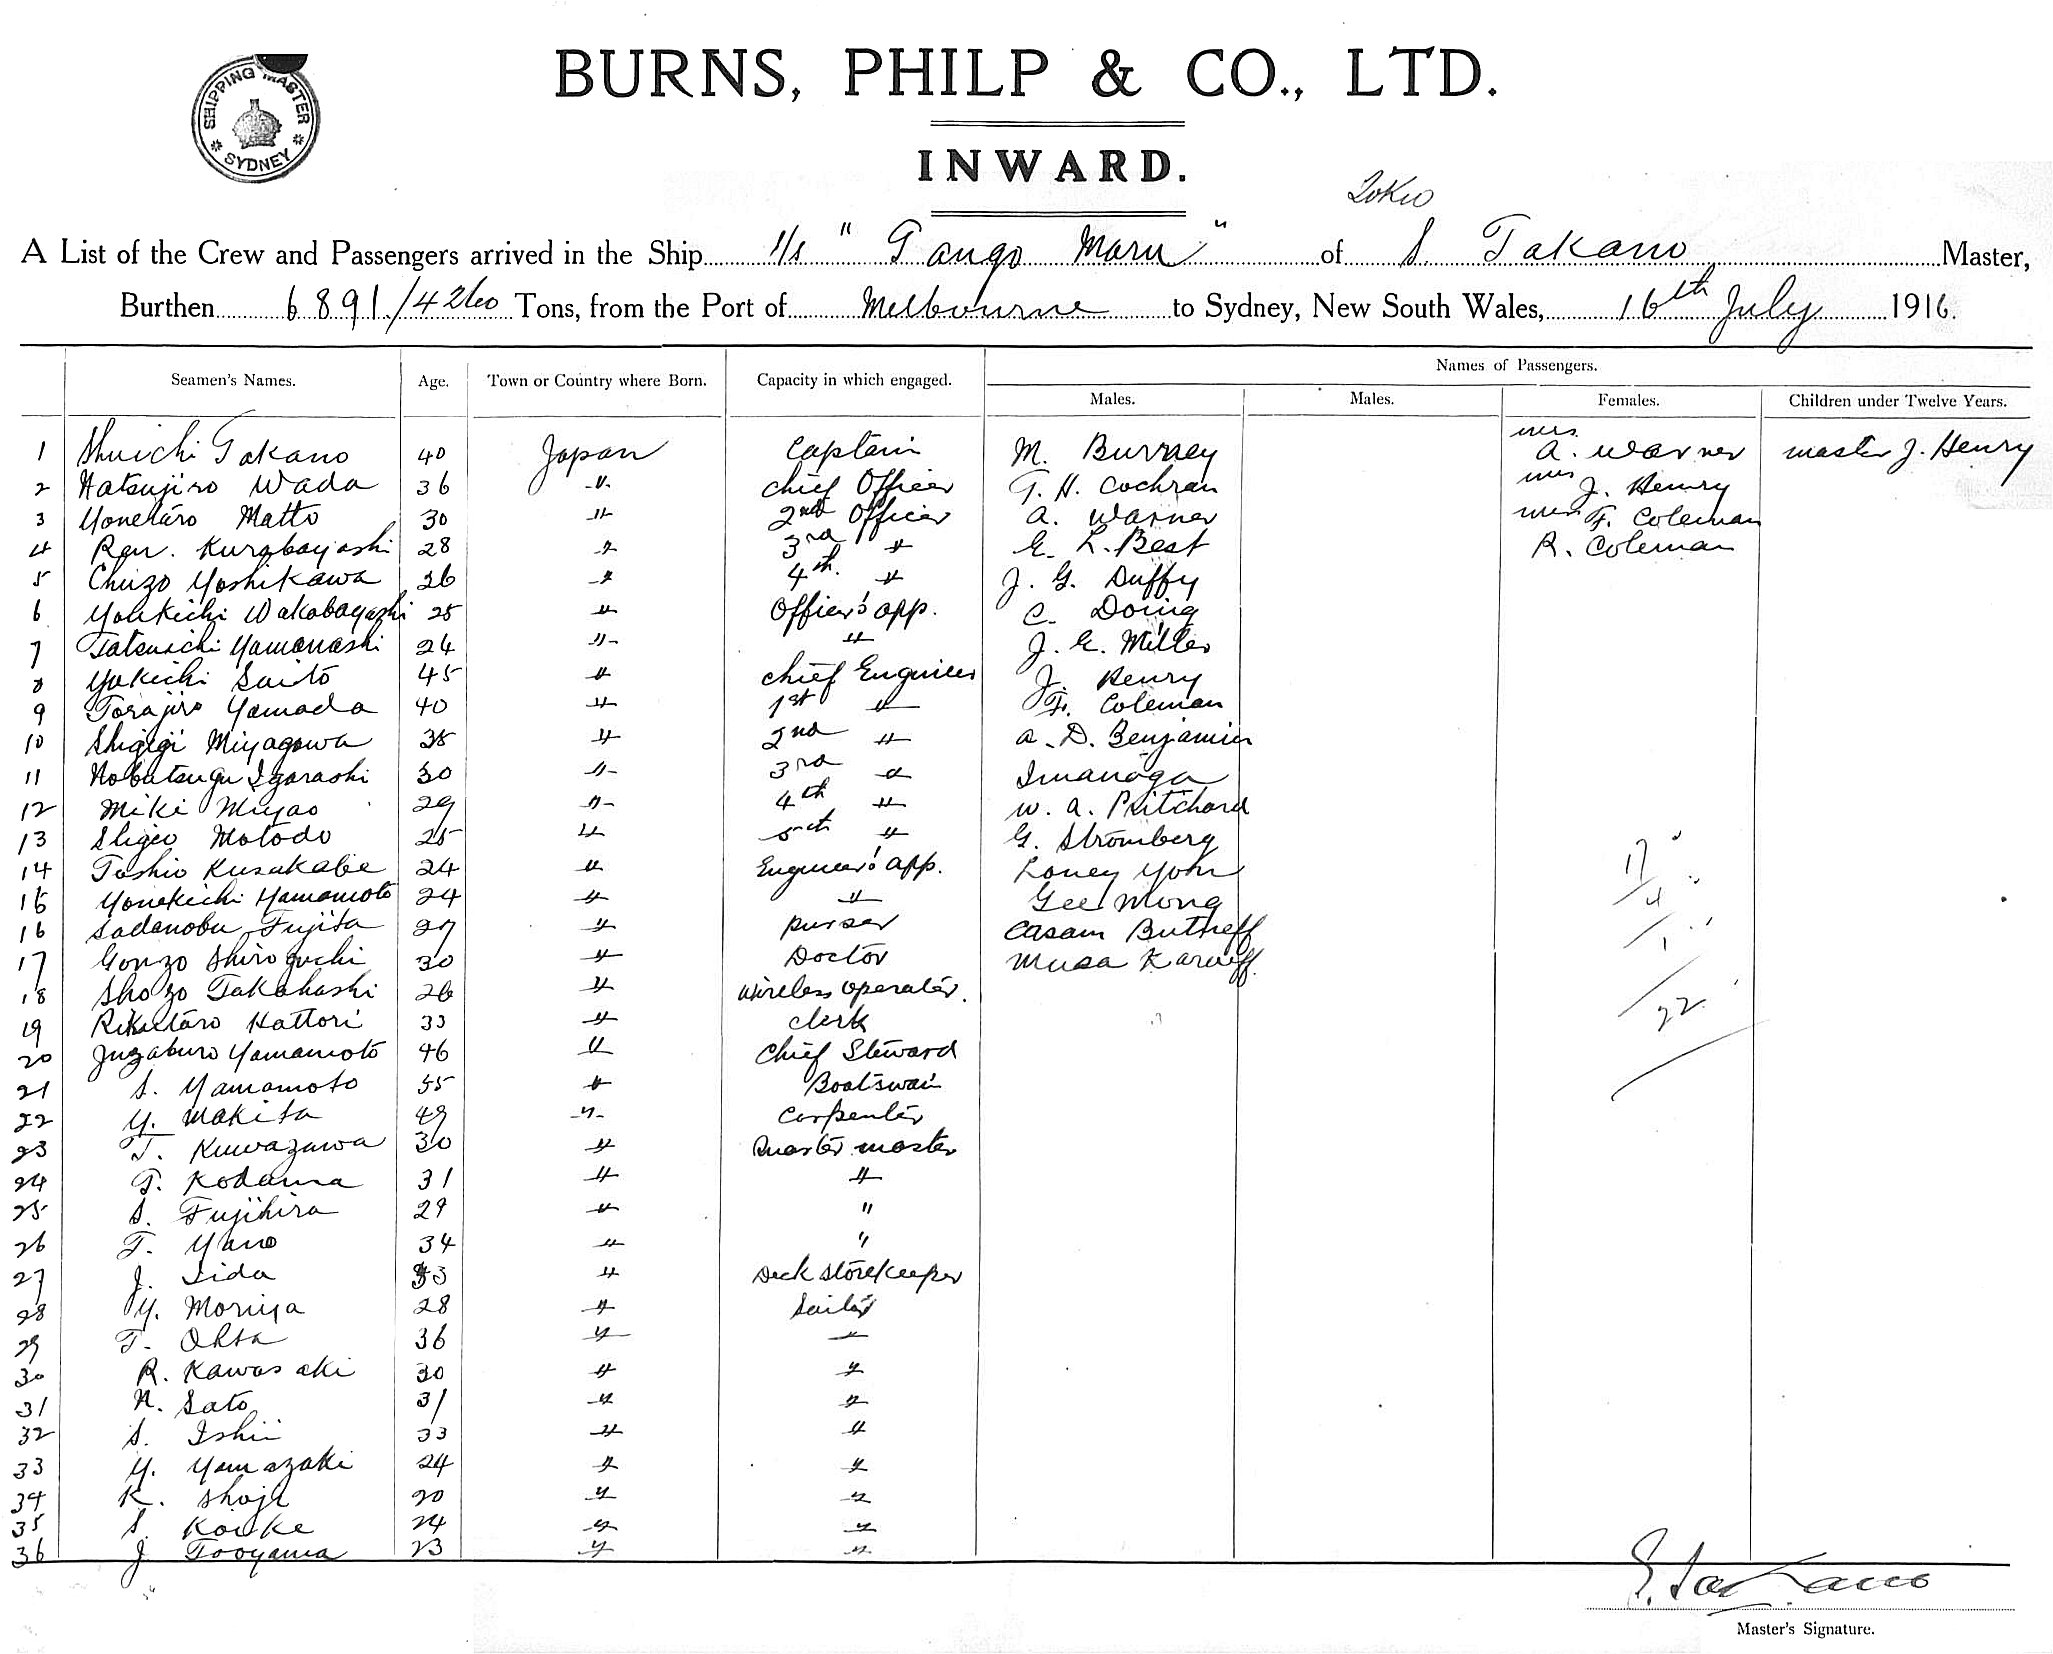 SHIPPING MASTER
SYDNEY
BURNS, PHILP & CO., LTD.
INWARD.
Tokio
A List of the Crew and Passengers arrived in the Ship s/s "Tango Maru" of S Takano Master,
Burthen 6891/4260 Tons, from the Port of Melbourne to Sydney, New South Wales, 16th July 1916.
Names of Passengers.
Seamen's Names. Age. Town or Country where Born. Capacity in which engaged. Males. Males. Females. Children under Twelve Years.
1 Shuichi Takano 40 Japan Captain M. Burney Mrs. A. Warner Master J. Henry
2 Hatsujiro Wada 36 " Chief Officer T. H. Cochran Mrs J. Henry
3 Yonetaro Matto 30 " 2nd Officer A. Warner Mrs F. Coleman
4 Ren. Kurabayashi 28 " 3rd " E. L. Best R. Coleman
5 Chuzo Yoshikawa 26 " 4th " J. G. Duffy
6 Wakabayashi 25 " Officer's app. C. Doring
7 Tatsuichi Yamanashi 24 " " J. E. Miller
8 Yukichi Saito 45 " Chief Engineer J. Henry
9 Torajiro Yamada 40 " 1st " F. Coleman
10 Shigegi Miyagawa 35 " 2nd " A. D. Benjamin
11 Nobutsugu Igarashi 30 " 3rd " Imanaga
12 Miki Miyao 29 " 4th " W. A. Pritchard
13 Shigeo Motodo 25 " 5th " G. Stromberg
14 Toshio Kusakabe 24 " Engineer's app. Loney
15 Yonekichi Yamamoto 24 " " Gee Mong
16 Sadanobu Fujita 27 " Purser Casam Butneff
17 Gonzo Shiroguchi 30 " Doctor Musa
18 Shozo Takahashi 26 " Wireless operator.
19 Rikutaro Hattori 33 " Clerk
20 Juzaburo Yamamoto 46 " Chief Steward
21 S. Yamamoto 55 " Boatswain
22 Y. Makita 49 " Carpenter
23 T. Kuwazawa 30 " Quarter master
24 T. Kodama 31 " "
25 S. Fujihira 29 " "
26 T. Yano 34 " "
27 J. Iida 33 " Deck Storekeeper
28 Y. Moriya 28 " Sailor
29 T. Ohta 36 " "
30 R. Kawasaki 30 " "
31 N. Sato 31 " "
32 S. Ishii 33 " "
33 Y. Yamazaki 24 " "
34 K. Shoji 20 " "
35 S. Koike 24 " "
36 J Tooyama 23 " "
17
4
1
22
S. Takano
Master's Signature.